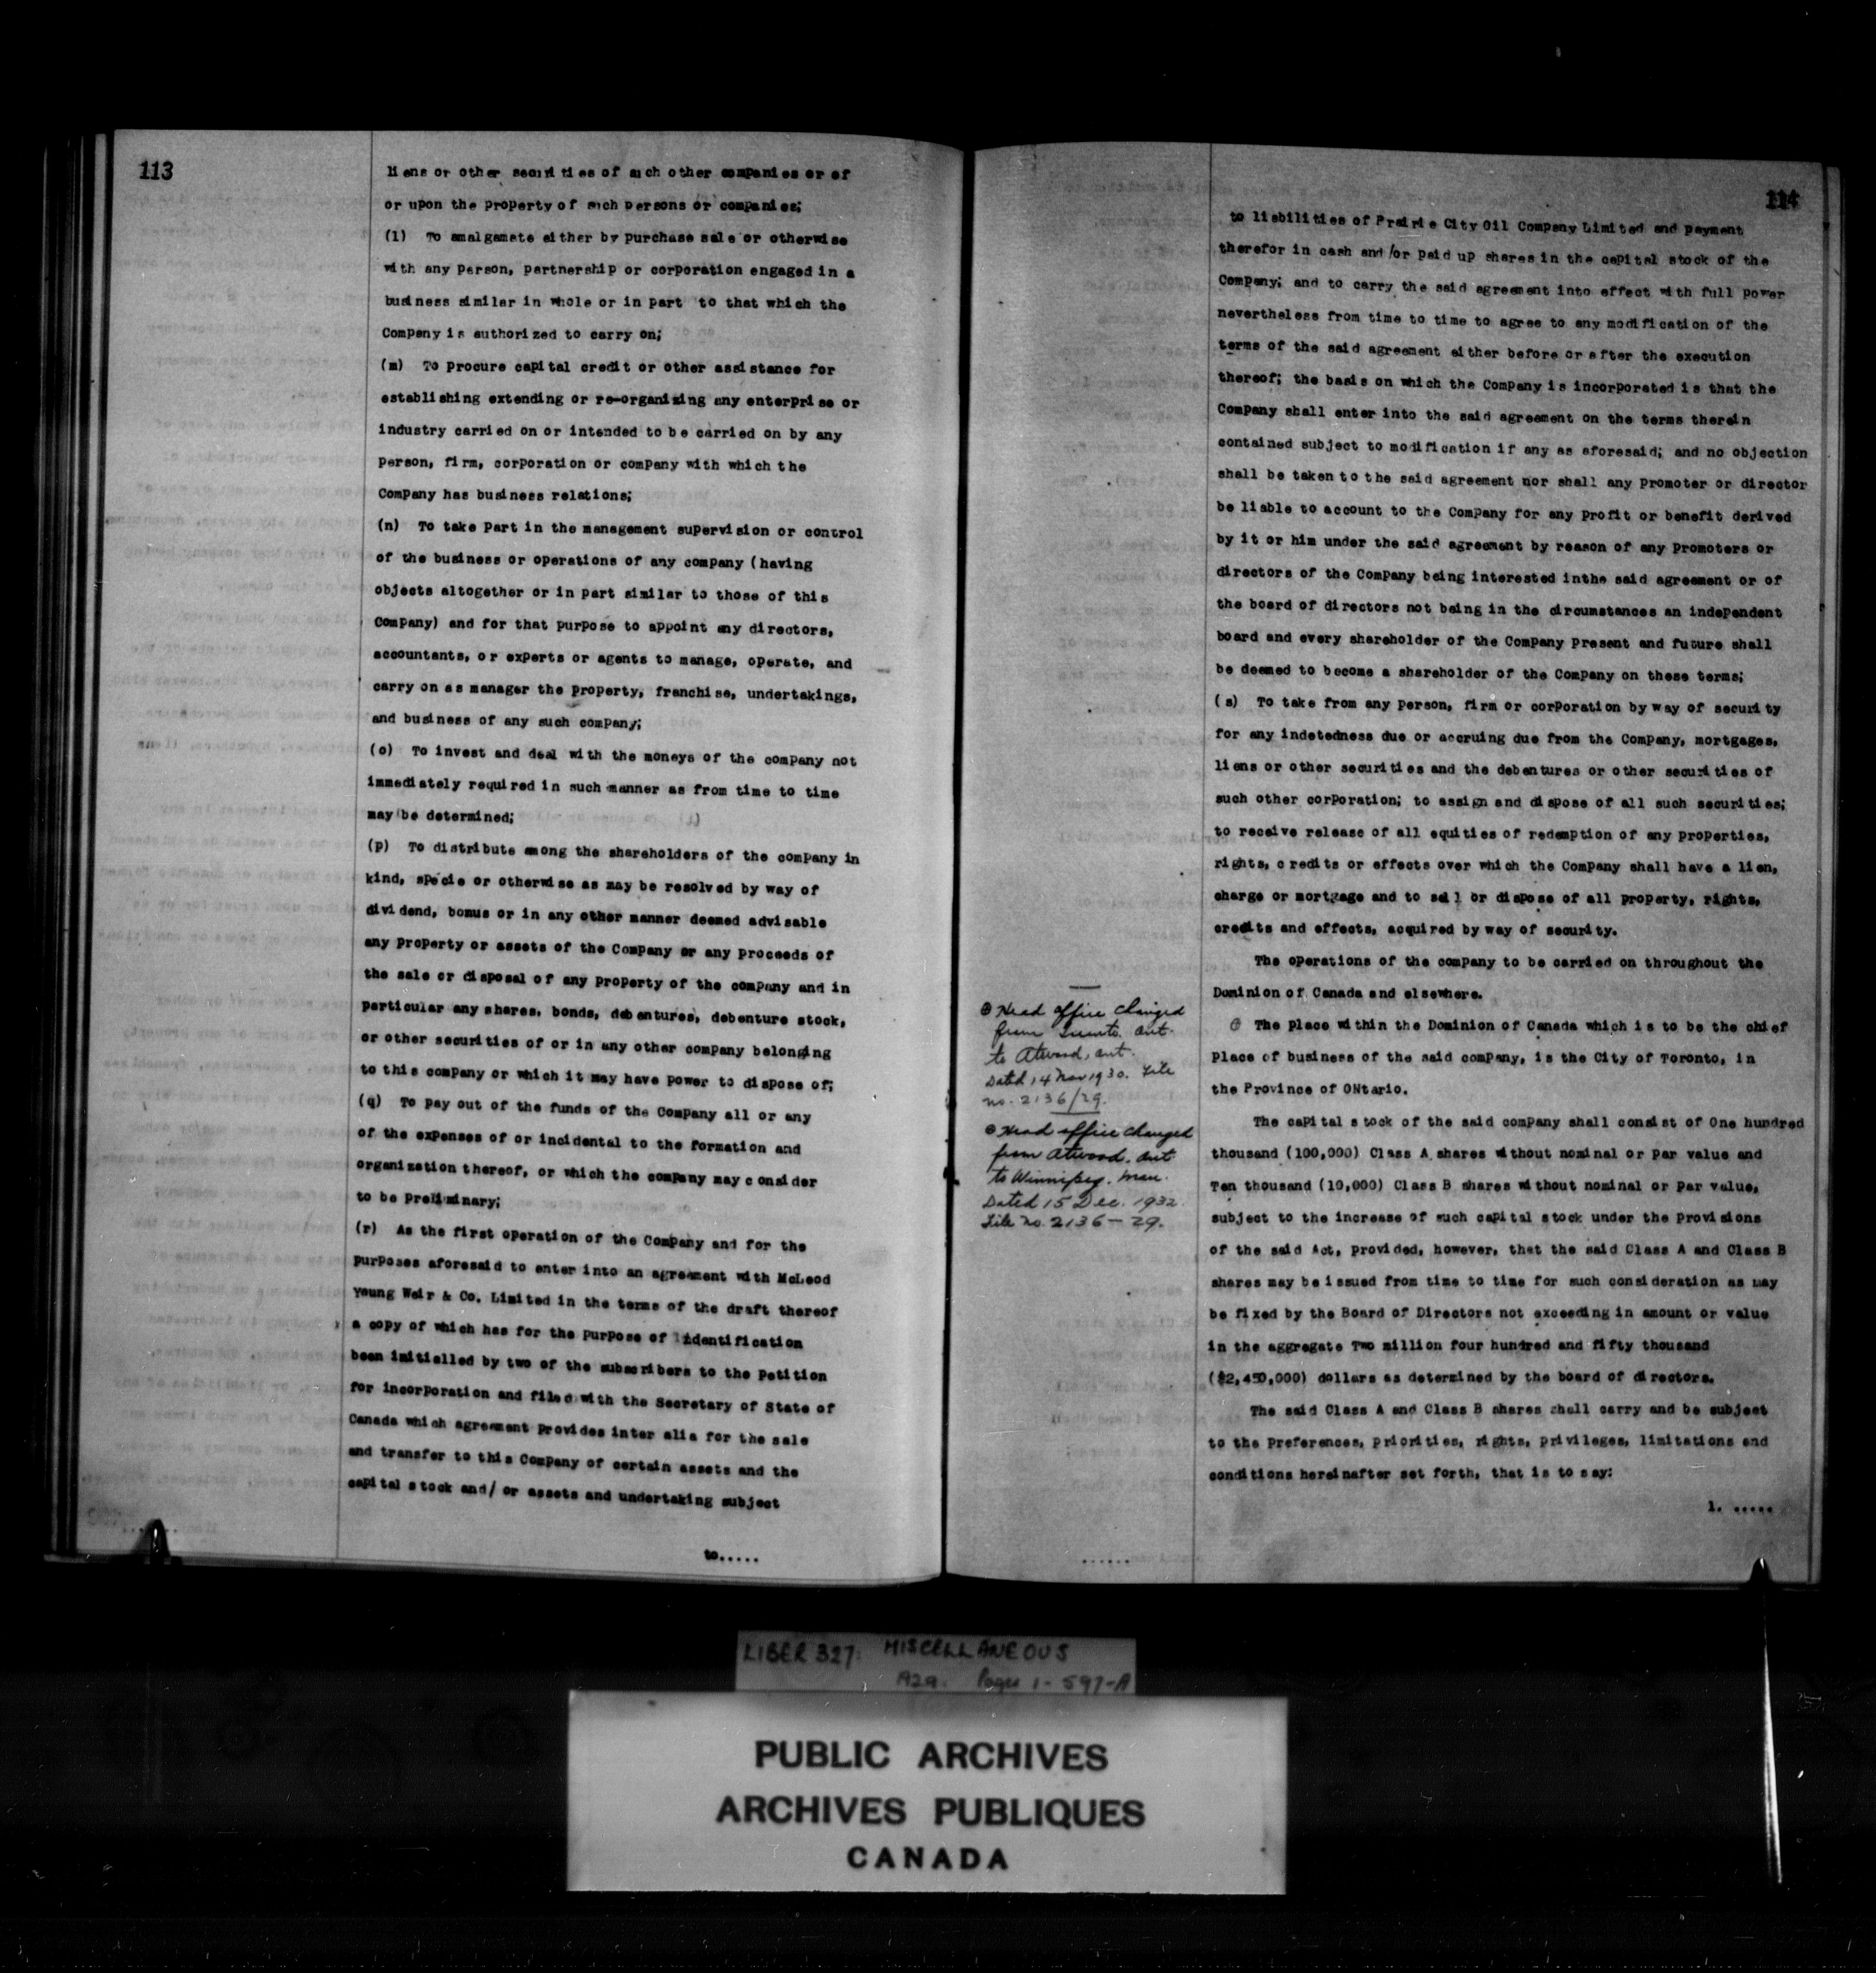 113
liens or other securities of such other companies or of
or upon the property of such persons or companies;
(l) To amalgamate either by purchase sale or otherwise
with any person, partnership or corporation engaged in a
business similar in whole or in part to that which the
Company is authorized to carry on;
(m) To procure capital credit or other assistance for
establishing extending or re-organizing any enterprise or
industry carried on or intended to be carried on by any
person, firm, corporation or company with which the
Company has business relations;
(n) To take part in the management supervision or control
of the business or operations of any company (having
objects altogether or in part similar to those of this
Company) and for that purpose to appoint any directors,
accountants, or experts or agents to manage, operate, and
carry on as manager the property, franchise, undertakings,
and business of any such company;
(o) To invest and deal with the moneys of the company not
immediately required in such manner as from time to time
may be determined;
(p) To distribute among the shareholders of the company in
kind, specie or otherwise as may be resolved by way of
dividend, bonus or in any other manner deemed advisable
any property or assets of the Company or any proceeds of
the sale or disposal of any property of the company and in
particular any shares, bonds, debentures, debenture stock,
or other securities of or in any other company belonging
to this company or which it may have power to dispose of;
(q) To pay out of the funds of the Company all or any
of the expenses of or incidental to the formation and
organization thereof, or which the company may consider
to be preliminary;
(r) As the first operation of the Company and for the
purposes aforesaid to enter into an agreement with McLeod
Young Weir & Co. Limited in the terms of the draft thereof
a copy of which has for the purpose of identification
been initialled by two of the subscribers to the Petition
for incorporation and filed with the Secretary of State of
Canada which agreement provides inter alia for the sale
and transfer to this Company of certain assets and the
capital stock and/ or assets and undertaking subject
to.....
114
to liabilities of Prairie City Oil Company Limited and payment
therefor in cash and/or paid up shares in the capital stock of the
Company; and to carry the said agreement into effect with full power
nevertheless from time to time to agree to any modification of the
terms of the said agreement either before or after the execution
thereof; the basis on which the Company is incorporated is that the
Company shall enter into the said agreement on the terms therein
contained subject to modification if any as aforesaid; and no objection
shall be taken to the said agreement nor shall any promoter or director
be liable to account to the Company for any profit or benefit derived
by it or him under the said agreement by reason of any promoters or
directors of the Company being interested inthe said agreement or of
the board of directors not being in the circumstances an independent
board and every shareholder of the Company present and future shall
be deemed to become a shareholder of the Company on these terms;
(s) To take from any person, firm or corporation by way of security
for any indetedness due or accruing due from the Company, mortgages,
liens or other securities and the debentures or other securities of
such other corporation; to assign and dispose of all such securities;
to receive release of all equities of redemption of any properties,
rights, credits or effects over which the Company shall have a lien,
charge or mortgage and to sell or dispose of all property, rights,
credits and effects, acquired by way of security.
The operations of the company to be carried on throughout the
Dominion of Canada and elsewhere.
⊕ The place within the Dominion of Canada which is to be the chief
place of business of the said company, is the City of Toronto, in
the Province of ONtario.
The capital stock of the said company shall consist of One hundred
thousand (100,000) Class A shares without nominal or par value and
Ten thousand (10,000) Class B shares without nominal or par value,
subject to the increase of such capital stock under the provisions
of the said Act, provided, however, that the said Class A and Class B
shares may be issued from time to time for such consideration as may
be fixed by the Board of Directors not exceeding in amount or value
in the aggregate Two million four hundred and fifty thousand
($2,450,000) dollars as determined by the board of directors.
The said Class A and Class B shares shall carry and be subject
to the preferences, priorities, rights, privileges, limitations and
conditions hereinafter set forth, that is to say:
1. .....
⊕ Head office changed
from Toronto. Ont.
to Atwood, Ont.
Dated 14 Nov 1930. File
no. 2136/29.
⊕ Head office changed
from Atwood. Ont
to Winnipeg. Man.
Dated 15 Dec. 1932.
File no. 2136-29.
LIBER 327: MISCELLANEOUS
1929. Pages 1-597-A
PUBLIC ARCHIVES
ARCHIVES PUBLIQUES
CANADA